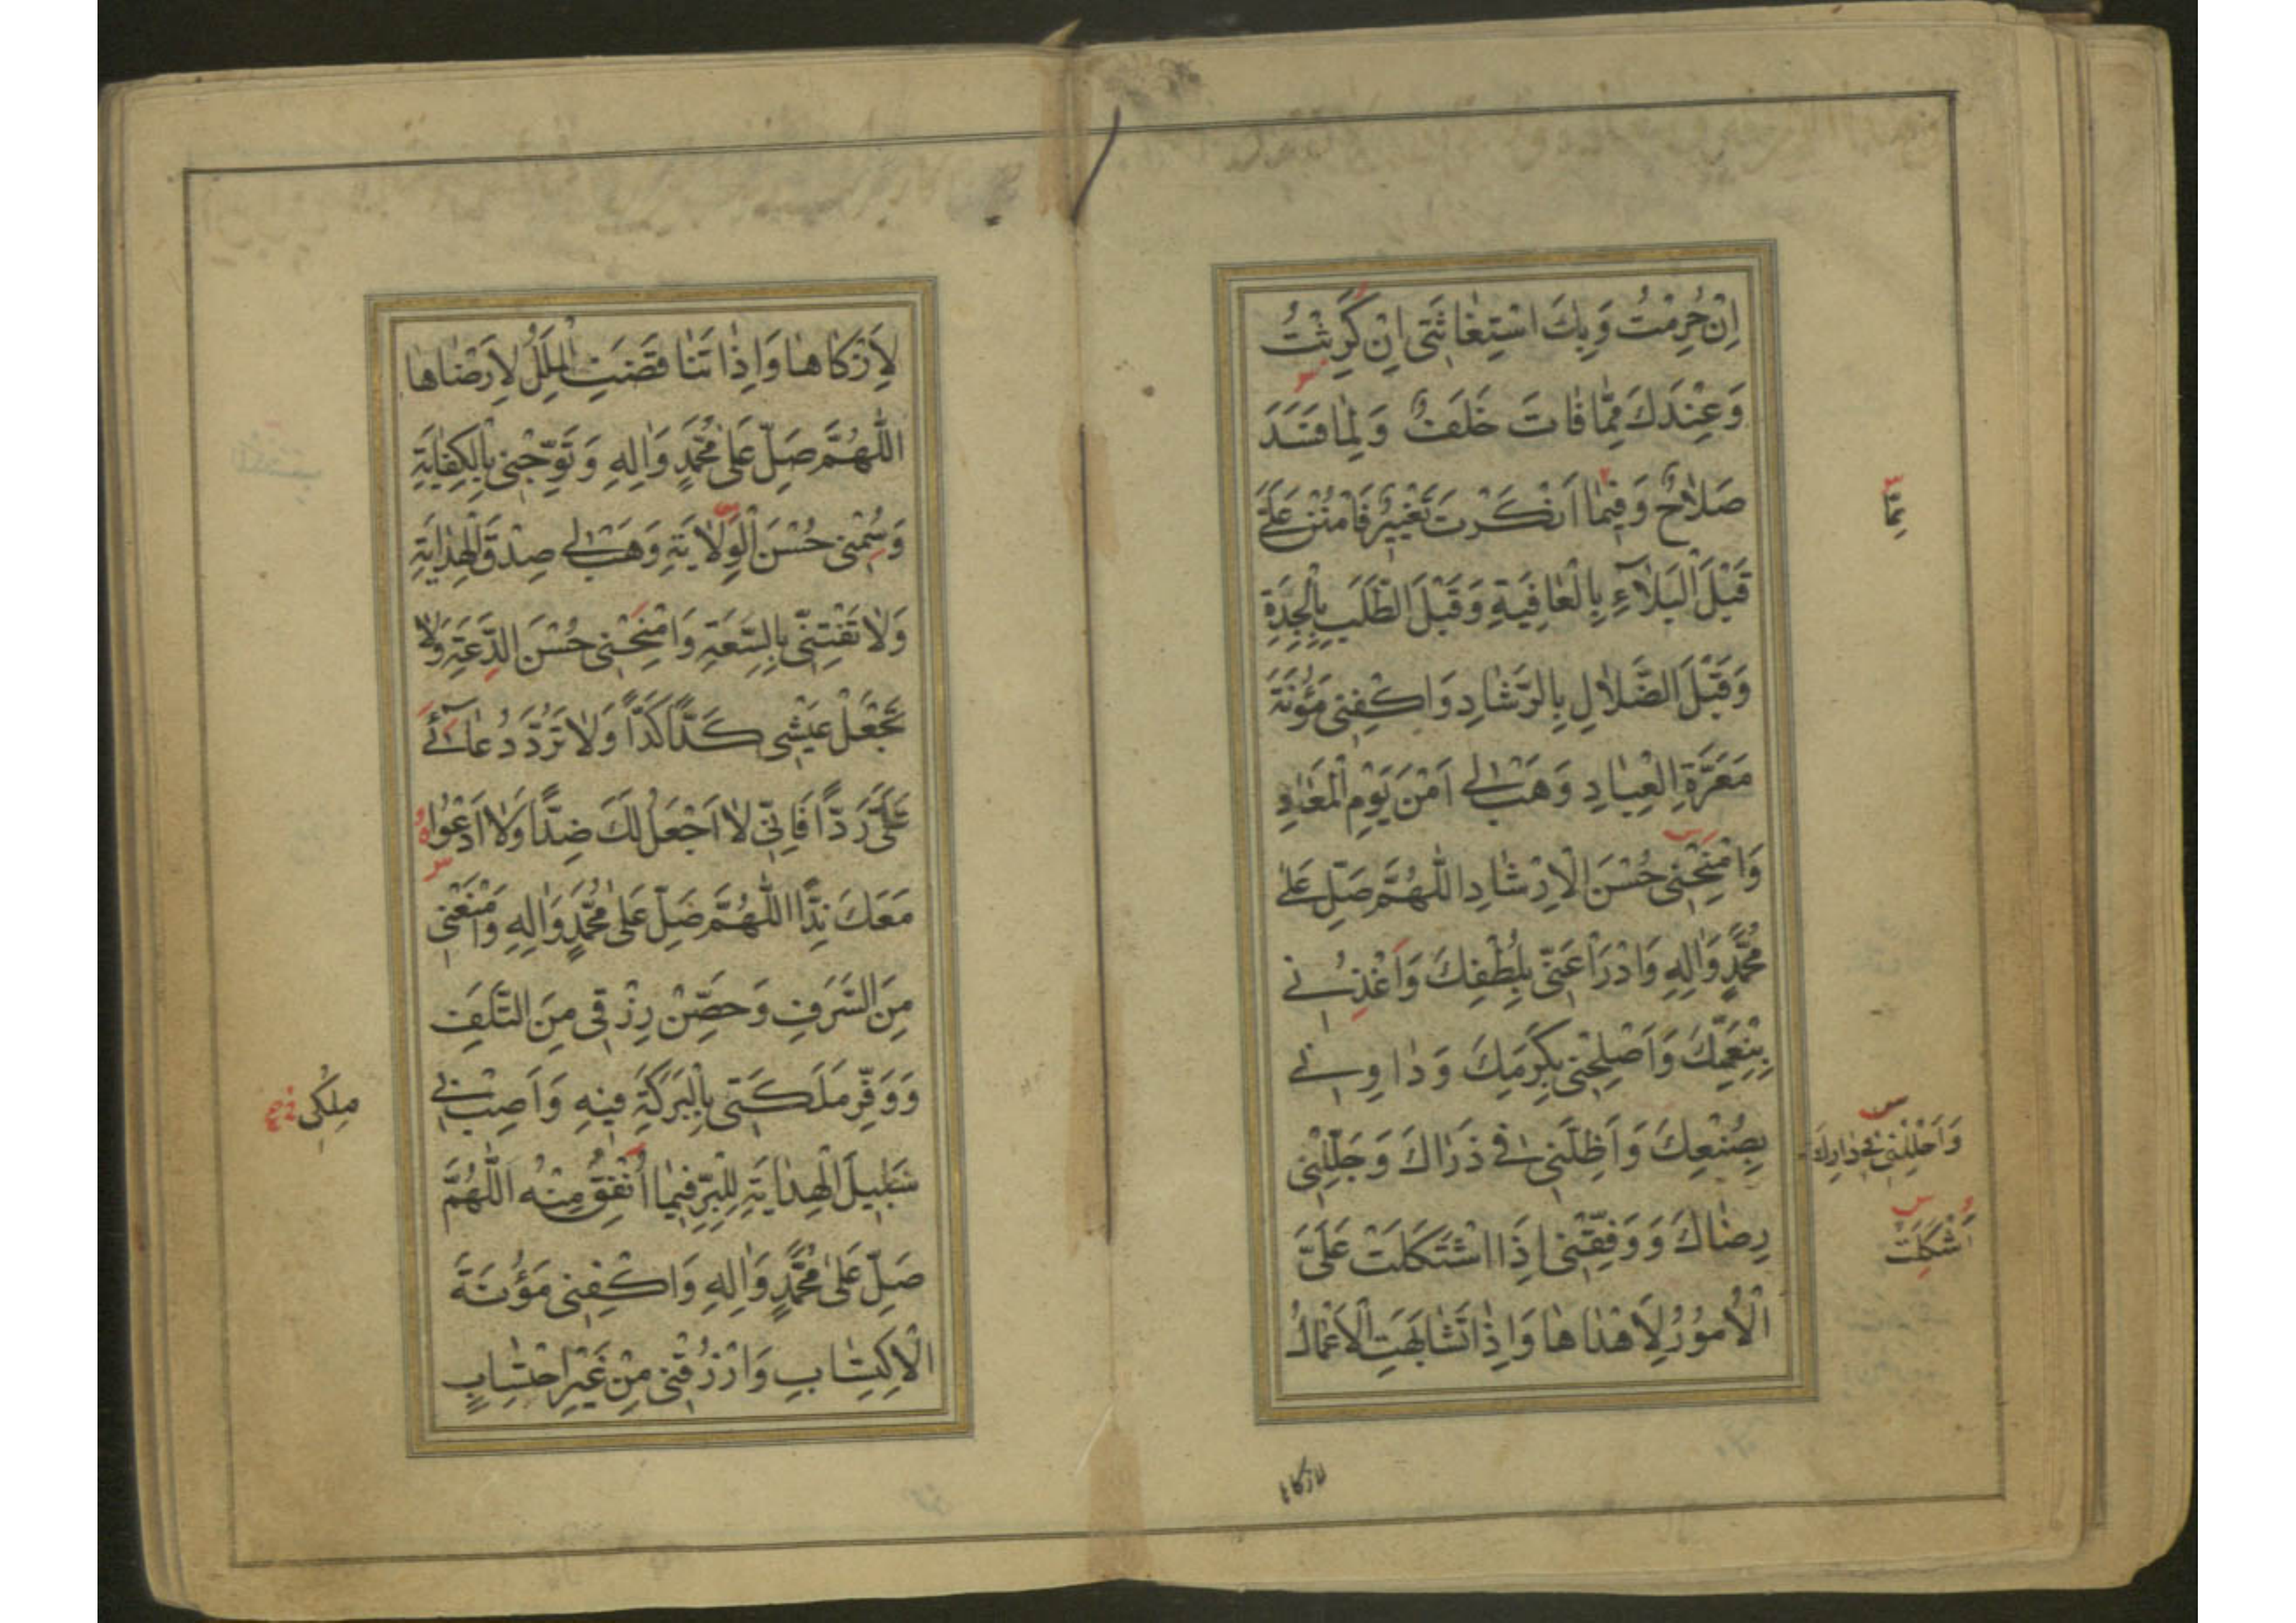 اِنْ حُرِمْتُ وَبِكَ اسْتِغٰاثَتٖى اِنْ كَرِثْتُ
وَعِنْدَكَ مِمّٰا فٰاتَ خَلَفٌ وَلِمٰا فَسَدَ
صَلاٰحٌ وَفيٖمٰا اَنْكَرْتَ تَغْيٖيرٌ فَامْنُنْ عَلَىَّ
قَبْلَ الْبَلاٰۤءِ بِالْعٰافِيَةِ وَقَبْلَ الطَّلَبِ بِالْجِدَةِ
وَقَبْلَ الضَّلاٰلِ بِالرَّشٰادِ وَاكْفِنٖى مَؤُنَةَ
مَعَرَّةِ الْعِبٰادِ وَهَبْ لٖى اَمْنَ يَوْمِ الْمَعٰادِ
وَامْنَحْنٖى حُسْنَ الْاِرْشٰادِ اَللّٰهُمَّ صَلِّ عَلىٰ
مُحَمَّدٍ وَاٰلِهِ وَادْرَأْ عَنّٖى بِلُطْفِكَ وَاغْذُنٖى
بِنِعْمَتِكَ وَاَصْلِحْنٖى بِكَرَمِكَ وَدٰاوِنٖى
بِصُنْعِكَ وَاَظِلَّنٖى فٖى ذَرٰاكَ وَجَلِّلْنٖى
رِضٰاكَ وَوَفِّقْنٖى اِذَا اشْتَكَلَتْ عَلَىَّ
الْاُمُورُ لِاَهْدٰاهٰا وَاِذٰا تَشٰابَهَتِ الْاَعْمٰالُ
مِمّٰا
وَاَحْلِلْنٖى فٖى دٰارِكَ
اَشْكَلَتْ
لازكاها
لِاَزْكٰاهٰا وَاِذٰا تَنٰاقَضَتِ الْمِلَلُ لِاَرْضٰاهٰا
اَللّٰهُمَّ صَلِّ عَلىٰ مُحَمَّدٍ وَاٰلِهِ وَتَوِّجْنٖى بِالْكِفٰايَةِ
وَسُمْنٖى حُسْنَ الْوِلاٰيَةِ وَهَبْ لٖى صِدْقَ الْهِدٰايَةِ
وَلاٰ تَفْتِنّٖى بِالسَّعَةِ وَامْنَحْنٖى حُسْنَ الدَّعَةِ وَلاٰ
تَجْعَلْ عَيْشٖى كَدًّا كَدًّا وَلاٰ تَرُدَّ دُعٰاۤئٖى
عَلَىَّ رَدًّا فَاِنّٖى لاٰ اَجْعَلُ لَكَ ضِدًّا وَلاٰ اَدْعُوا
مَعَكَ نِدًّا اَللّٰهُمَّ صَلِّ عَلىٰ مُحَمَّدٍ وَاٰلِهِ وَامْنَعْنٖى
مِنَ السَّرَفِ وَحَصِّنْ رِزْقٖى مِنَ التَّلَفِ
وَوَفِّرْ مَلَكَتٖى بِالْبَرَكَةِ فيٖهِ وَاَصِبْ بٖى
سَبٖيلَ الْهِدٰايَةِ لِلْبِرِّ فيٖمٰا اُنْفِقُ مِنْهُ اَللّٰهُمَّ
صَلِّ عَلىٰ مُحَمَّدٍ وَاٰلِهِ وَاكْفِنٖى مَؤُنَةَ
الْاِكْتِسٰابِ وَارْزُقْنٖى مِنْ غَيْرِ احْتِسٰابٍ
مِلْكٖى